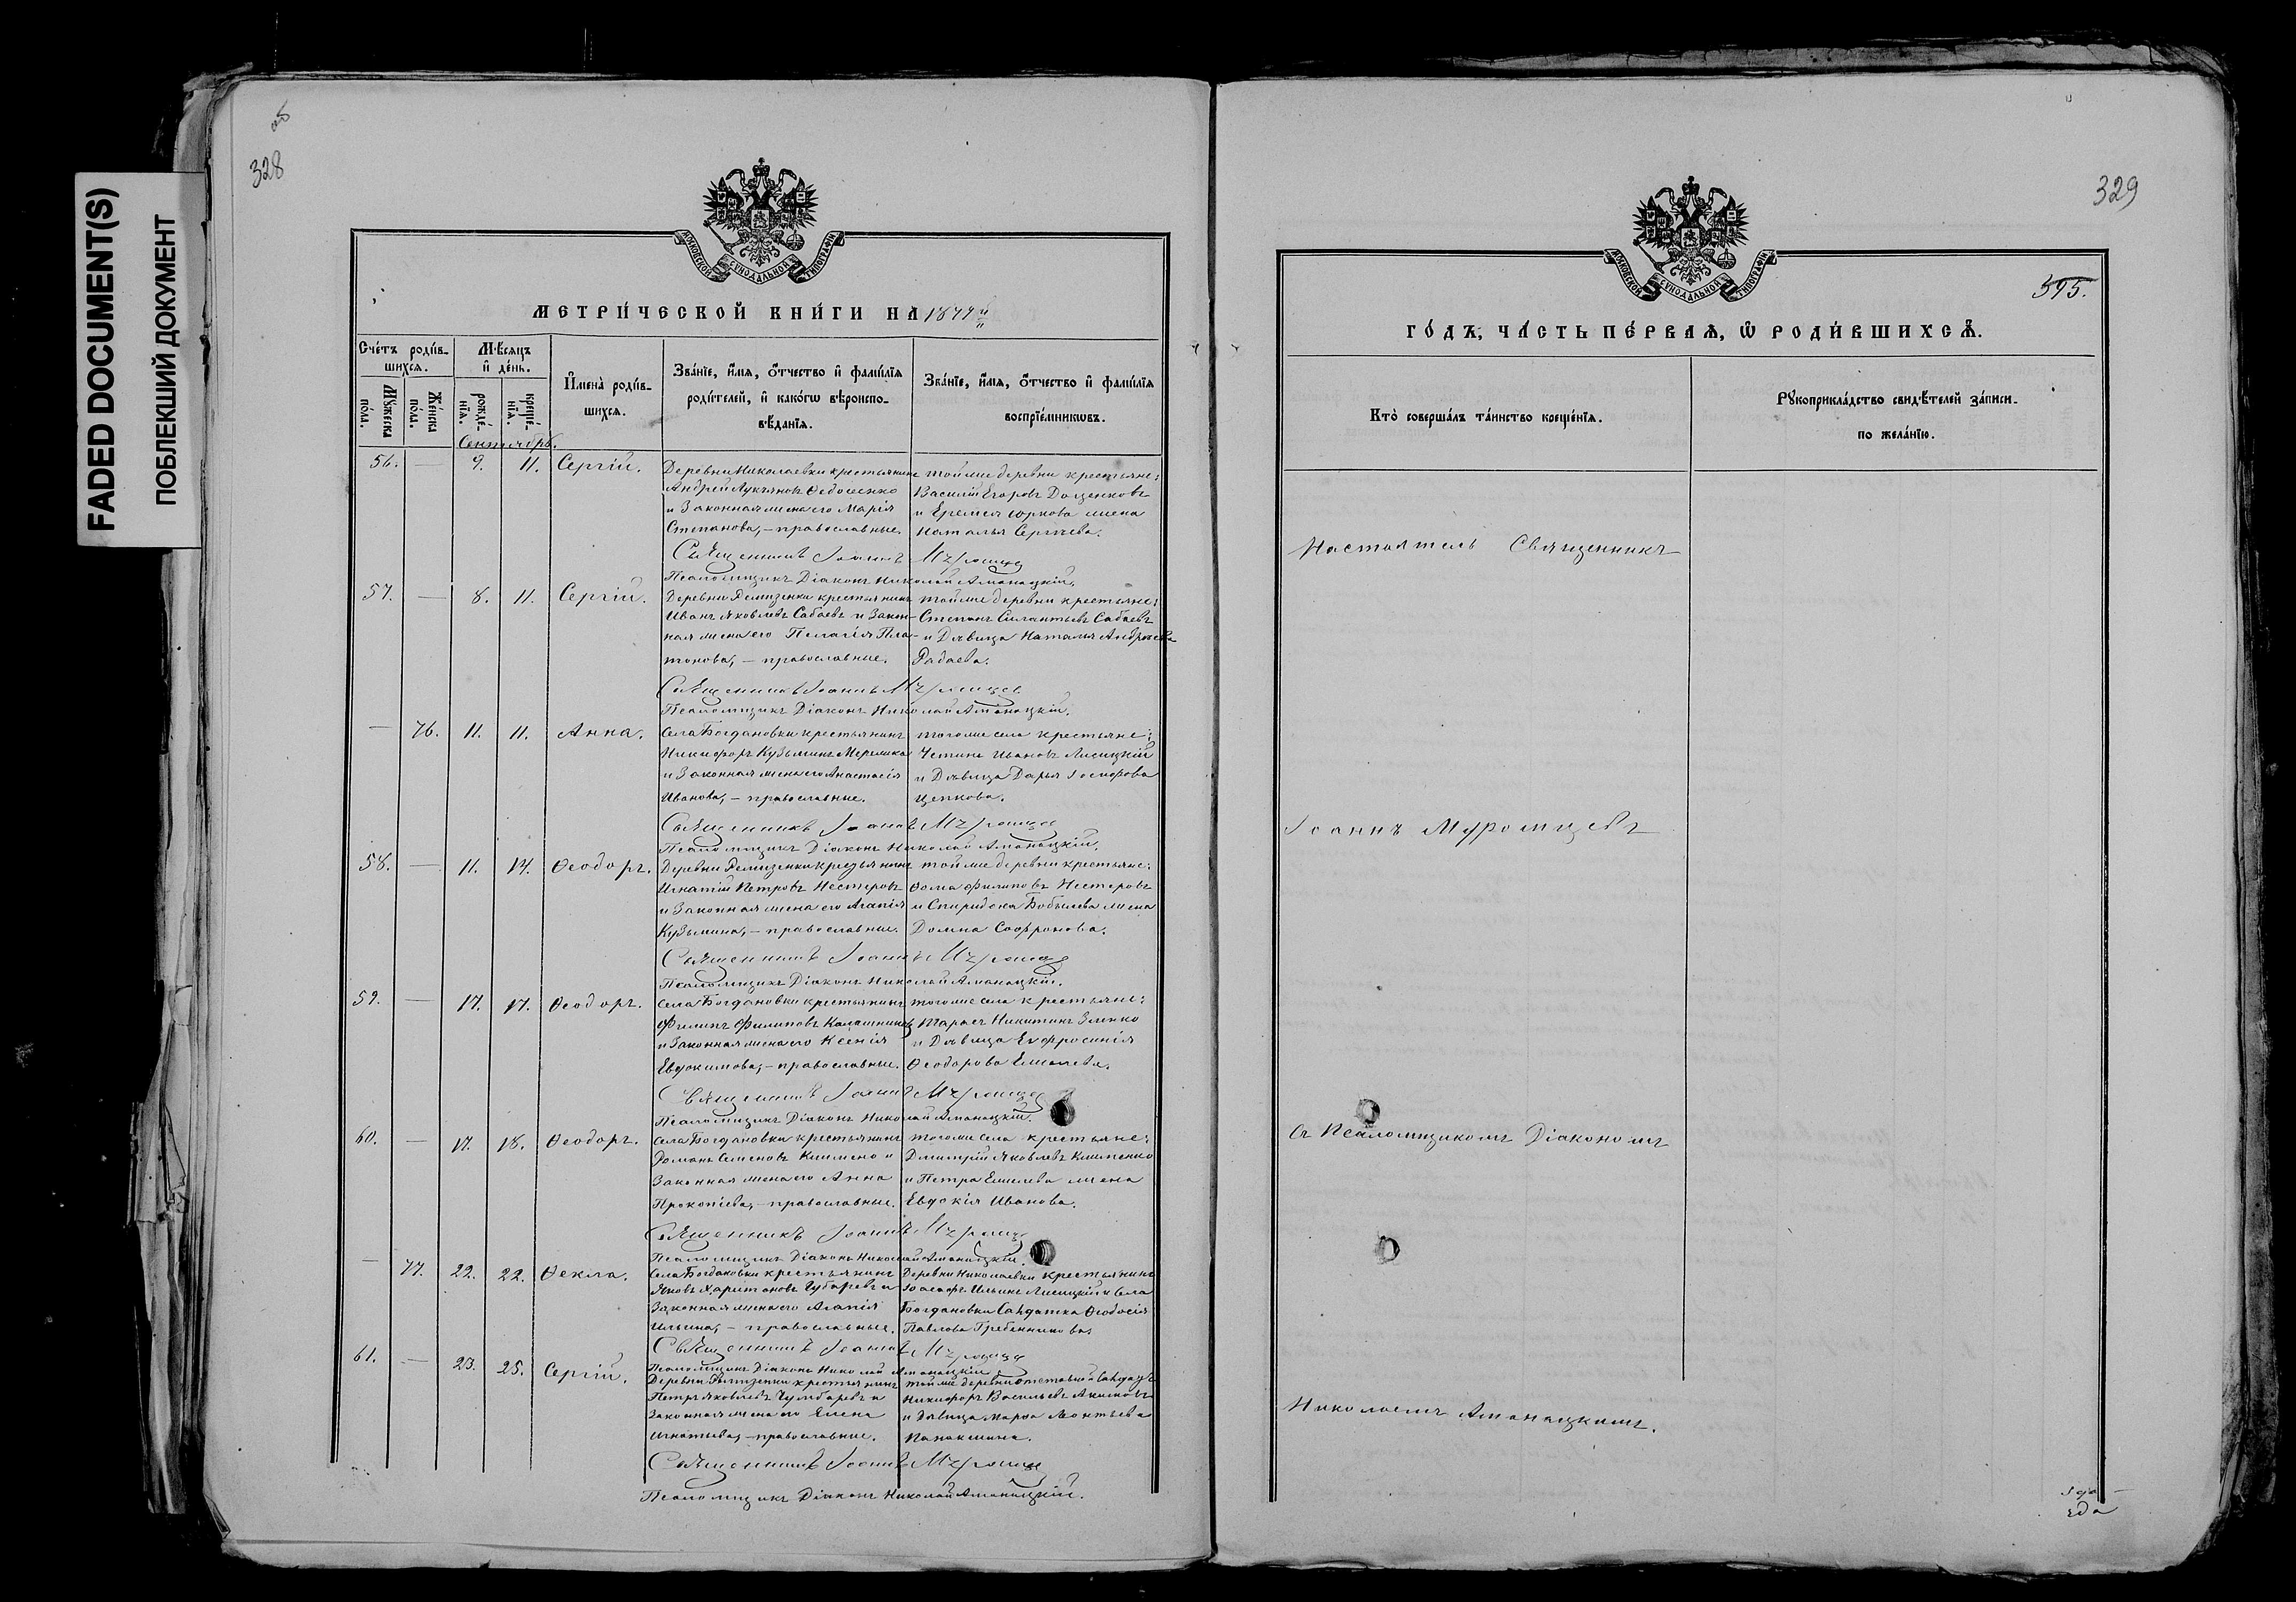 FADED DOCUMENT(S)
ПОБЛЕКШИЙ ДОКУМЕНТ
об
328
МОСКОВСКОЙ СѴНОДАЛЬНОЙ ТИПОГРАФІИ
МЕТРИ́ЧЕСКОЙ КНИ́ГИ НА 1877й
Сче́тъ роди́в-
шихся.
Мѣ́сяцъ
и҆ де́нь.
Му́жеска по́ла.
Же́нска по́ла.
рожде́-
нїя.
креще́-
нїя.
И҆мена̀ роди́в-
шихся.
Зва́нїе, и҆́мя, ѻ҆́тчество и҆ фами́лїя
роди́телей, и҆ како́гѡ вѣроиспо-
вѣ́данїя.
Зва́нїе, и҆́мя, ѻ҆́тчество и҆ фами́лїя
воспрїе́мникѡвъ.
Сентябрь.
56. — 9. 11. Сергій.
Деревни Николаевки крестьянинъ
Андрей Лукьяновъ Ѳедосенко
и законная жена его Марія
Степанова, — православные.
тойже деревни крестьяне:
Василій Егоровъ Доценковъ
и Еремея жена
Наталья Сергѣева.
Священникъ Іоаннъ Муромцев
Псаломщикъ Діаконъ Николай Аманацкій.
57. — 8. 11. Сергій.
Деревни Ремизенки крестьянинъ
Иванъ Яковлевъ Сабаевъ и закон-
ная жена его Пелагія Пла-
тонова, — православные.
тойже деревни крестьяне:
Степанъ Силантьевъ Сабаевъ
и Дѣвица Наталья Андреева
Радаева.
Священникъ Іоаннъ Муромцев
Псаломщикъ Діаконъ Николай Аманацкій.
— 76. 11. 11. Анна.
Села Богдановки крестьянинъ
Никифоръ Кузьминъ
и законная жена его Анастасія
Иванова, — православные.
тогоже села крестьяне:
Устинъ Ивановъ Лисицкій
и Дѣвица Дарья Іосифова
Цепкова.
Священникъ Іоаннъ Муромцев
Псаломщикъ Діаконъ Николай Аманацкій.
58. — 11. 14. Ѳеодоръ.
Деревни Ремизенки крестьянинъ
Игнатій Петровъ Нестеровъ
и законная жена его Агапія
Кузьмина, — православные.
тойже деревни крестьяне:
Ѳома Филиповъ Нестеровъ
и Спиридона Бобылева жена
Домна Софронова.
Священникъ Іоаннъ Муромцев
Псаломщикъ Діаконъ Николай Аманацкій.
59. — 17. 17. Ѳеодоръ.
Села Богдановки крестьянинъ
Филипъ Филиповъ Калашниковъ
и законная жена его Ксенія
Евдокимова, — православные.
тогоже села крестьяне:
Тарасъ Никитинъ Зленко
и Дѣвица Евфросинія
Ѳеодорова Емелева.
Священникъ Іоаннъ Муромцев
Псаломщикъ Діаконъ Николай Аманацкій.
60. — 17. 18. Ѳеодоръ.
Села Богдановки крестьянинъ
Романъ Семеновъ Клименко и
законная жена его Анна
Прокопіева, — православные.
тогоже села крестьяне:
Дмитрій Яковлевъ Клименко
и Петра Емелева жена
Евдокія Иванова.
Священникъ Іоаннъ Муромцев
Псаломщикъ Діаконъ Николай Аманацкій.
— 77. 22. 22. Ѳекла.
Села Богдановки крестьянинъ
Яковъ Харитоновъ Чубаревъ и
законная жена его Агапія
Ильина, — православные.
Деревни Николаевки крестьянинъ
Іоасафъ Ильинъ Лисицкій и села
Богдановки Солдатка Ѳеодосія
Павлова Гребенникова.
Священникъ Іоаннъ Муромцев
Псаломщикъ Діаконъ Николай Аманацкій.
61. — 23. 25. Сергій.
Деревни Ремизенки крестьянинъ
Петръ Яковлевъ Чумбаревъ и
законная жена его Елена
Игнатьева, — православные.
тойже деревни отставной Солдатъ
Никифоръ Васильевъ Акимовъ
и дѣвица Марѳа Леонтьева
Паракшина.
Священникъ Іоаннъ Муромцев
Псаломщикъ Діаконъ Николай Аманацкій.
329
МОСКОВСКОЙ СѴНОДАЛЬНОЙ ТИПОГРАФІИ
595.
ГО́ДЪ, ЧА́СТЬ ПЕ́РВАЯ, Ѡ҆ РОДИ́ВШИХСЯ.
Кто̀ соверша́лъ та́инство креще́нїя.
Рꙋкоприкла́дство свидѣ́телей за́писи
по жела́нїю.
Настоятель Священникъ
Іоаннъ Муромцевъ
съ Псаломщикомъ Діакономъ
Николаемъ Аманацкимъ.